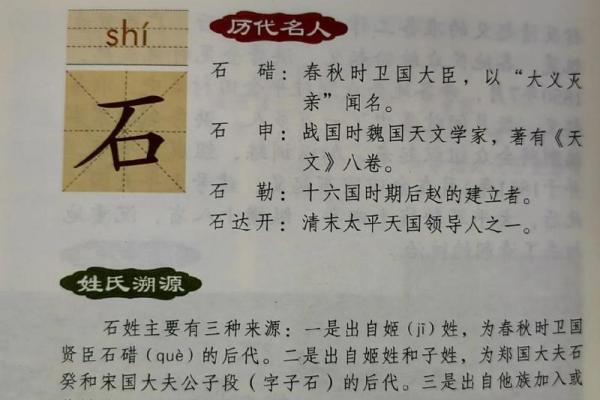 shí
石
历代名人
石 碏：春秋时卫国大臣，以“大义灭
亲”闻名。
石 申：战国时魏国天文学家，著有《天
文》八卷。
石 勒：十六国时期后赵的建立者。
石达开：清末太平天国领导人之一。
姓氏溯源
石姓主要有三种来源：一是出自姬（jī）姓，为春秋时卫国
贤臣石碏（què）的后代。二是出自姬姓和子姓，为郑国大夫石
癸和宋国大夫公子段（字子石）的后代。三是出自他族加入或